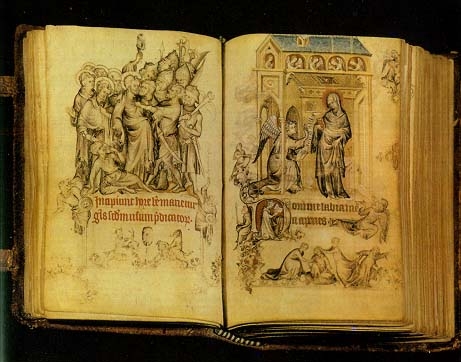 Incipiunt hore be marie uir
gis scdm usum pdicator.
Domine labia me
a aperies